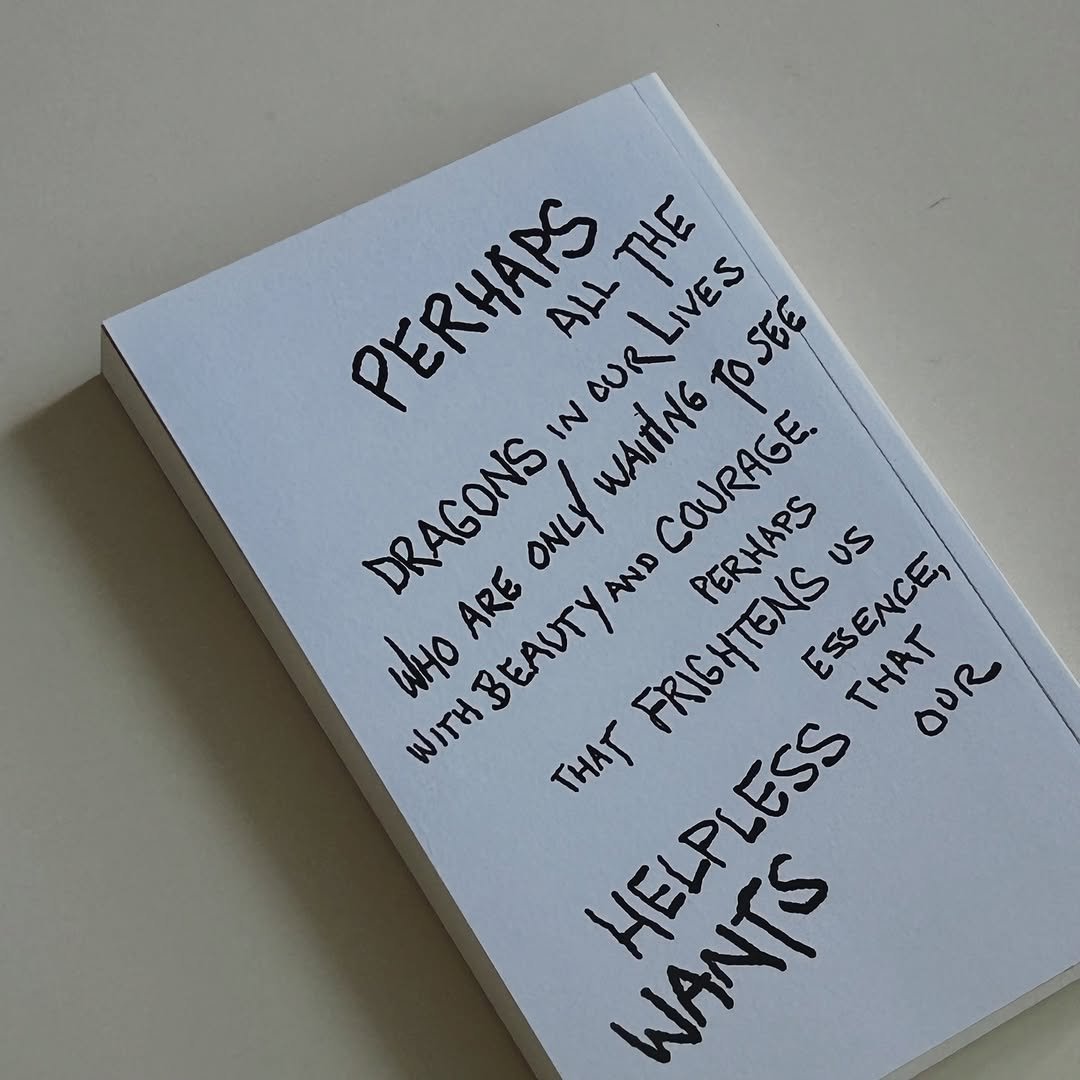 PERHAPS
ALL THE
DRAGONS IN OUR LIVES
WHO ARE ONLY WAITING TO SEE
WITH BEAUTY AND COURAGE.
PERHAPS
THAT FRIGHTENS US
ESSENCE,
HELPLESS THAT
OUR
WANTS